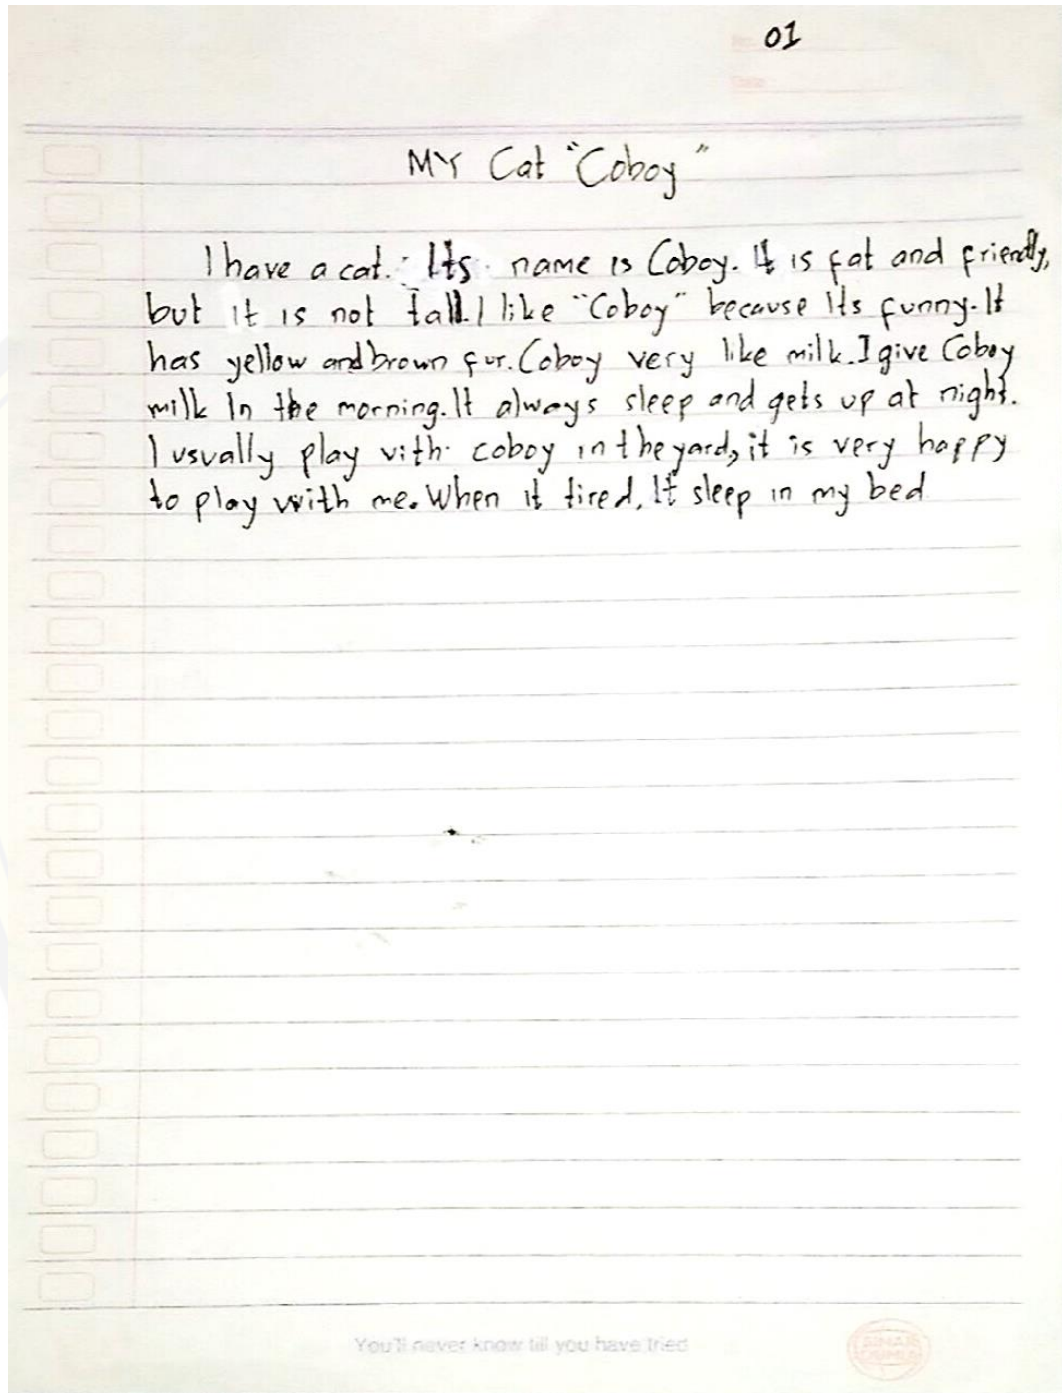 01
MY Cat "Coboy"
I have a cat. Its name is Coboy. It is fat and friendly,
but it is not tall. I like "Coboy" because Its funny. It
has yellow and brown fur. Coboy very like milk. I give Coboy
milk In the morning. It always sleep and gets up at night.
I usually play with coboy in the yard, it is very happy
to play with me. When it tired, It sleep in my bed
You'll never know till you have tried